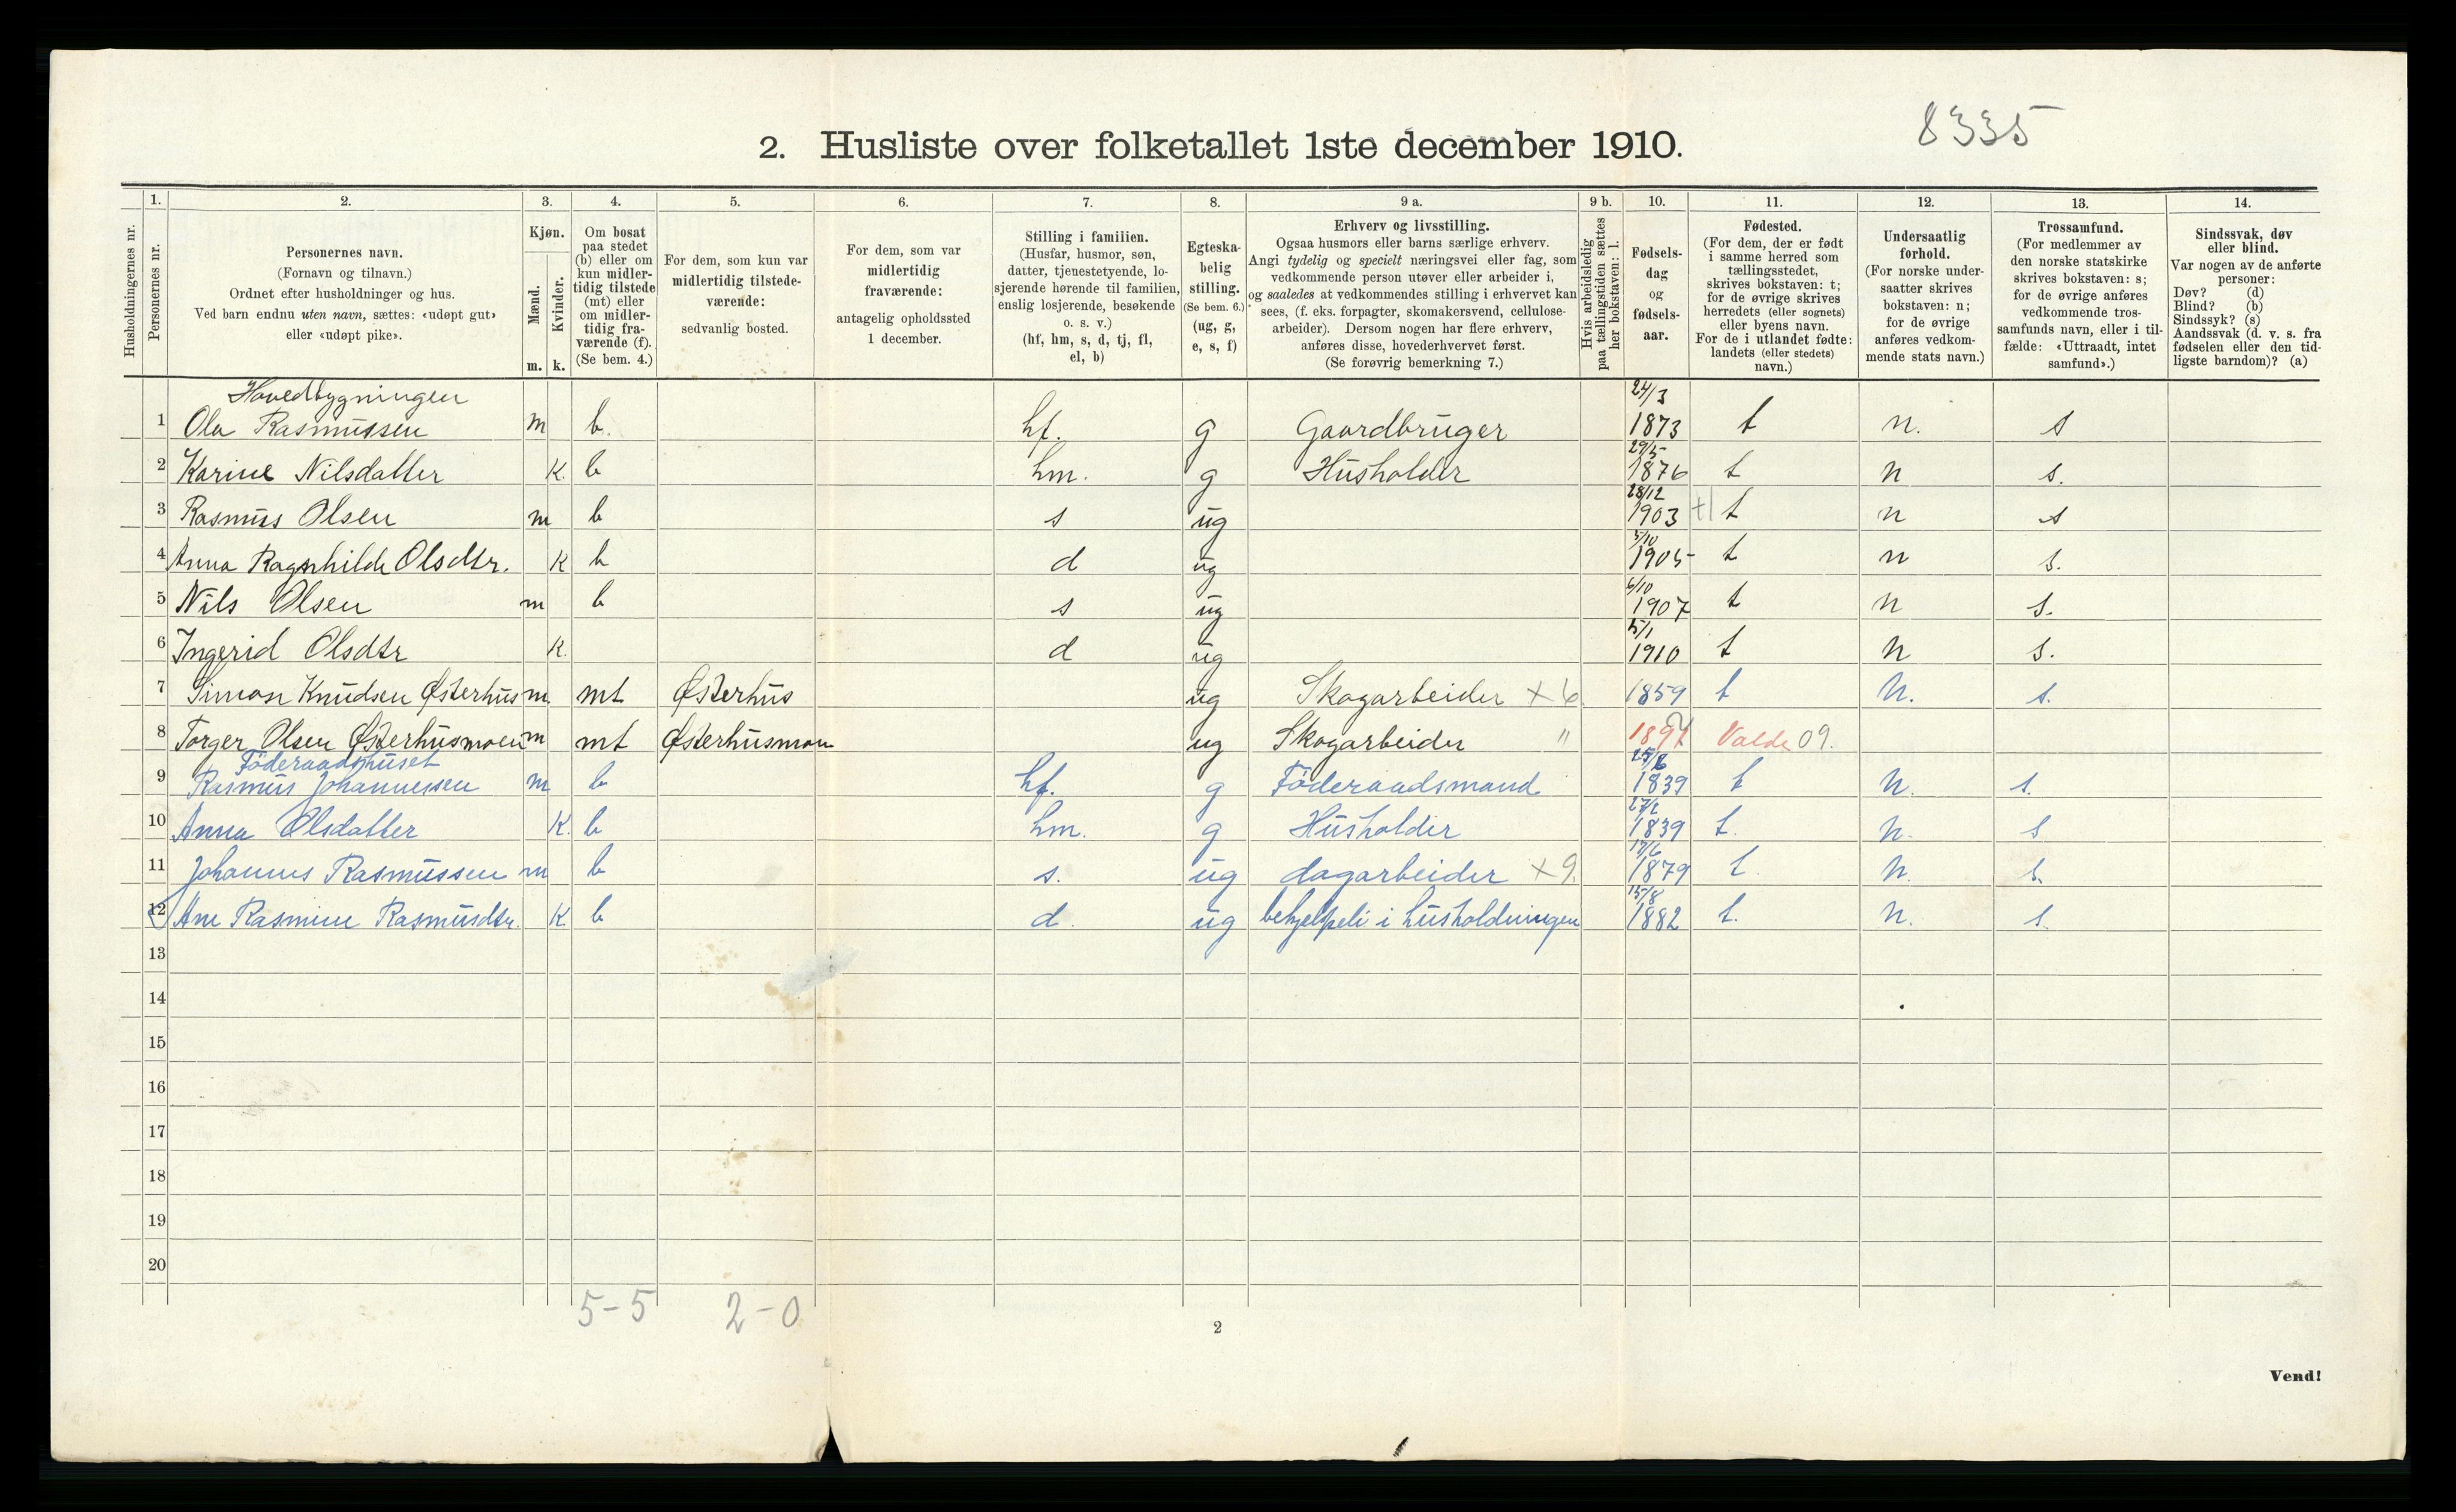 8335
2. Husliste over folketallet 1ste december 1910.
Husholdningernes nr.
1. Personernes nr.
2. Personernes navn.
(Fornavn og tilnavn.)
Ordnet efter husholdninger og hus.
Ved barn endnu uten navn, sættes: «udøpt gut»
eller «udøpt pike».
3. Kjøn.
Mænd. m.
Kvinder. k.
4. Om bosat
paa stedet
(b) eller om
kun midler-
tidig tilstede
(mt) eller
om midler-
tidig fra-
værende (f).
(Se bem. 4.)
5. For dem, som kun var
midlertidig tilstede-
værende:
sedvanlig bosted.
6. For dem, som var
midlertidig
fraværende:
antagelig opholdssted
1 december.
7. Stilling i familien.
(Husfar, husmor, søn,
datter, tjenestetyende, lo-
sjerende hørende til familien,
enslig losjerende, besøkende
o. s. v.)
(hf, hm, s, d, tj, fl,
el, b)
8. Egteska-
belig
stilling.
(Se bem. 6.)
(ug, g,
e, s, f)
9 a. Erhverv og livsstilling.
Ogsaa husmors eller barns særlige erhverv.
Angi tydelig og specielt næringsvei eller fag, som
vedkommende person utøver eller arbeider i,
og saaledes at vedkommendes stilling i erhvervet kan
sees, (f. eks. forpagter, skomakersvend, cellulose-
arbeider). Dersom nogen har flere erhverv,
anføres disse, hovederhvervet først.
(Se forøvrig bemerkning 7.)
9 b. Hvis arbeidsledig
paa tællingstiden sættes
her bokstaven: l.
10. Fødsels-
dag
og
fødsels-
aar.
11. Fødested.
(For dem, der er født
i samme herred som
tællingsstedet,
skrives bokstaven: t;
for de øvrige skrives
herredets (eller sognets)
eller byens navn.
For de i utlandet fødte:
landets (eller stedets)
navn.)
12. Undersaatlig
forhold.
(For norske under-
saatter skrives
bokstaven: n;
for de øvrige
anføres vedkom-
mende stats navn.)
13. Trossamfund.
(For medlemmer av
den norske statskirke
skrives bokstaven: s;
for de øvrige anføres
vedkommende tros-
samfunds navn, eller i til-
fælde: «Uttraadt, intet
samfund».)
14. Sindssvak, døv
eller blind.
Var nogen av de anførte
personer:
Døv? (d)
Blind? (b)
Sindssyk? (s)
Aandssvak (d. v. s. fra
fødselen eller den tid-
ligste barndom)? (a)
Hovedbygningen
1 Ola Rasmussen m b. hf. g Gaardbruger 24/3 1873 t n. s
2 Karine Nilsdatter K. b hm. g Husholder 29/5 1876 t n s.
3 Rasmus Olsen m b s ug 28/12 1903 t n s
4 Anna Ragnhilde Olsdtr. K b d ug 5/10 1905 t n s.
5 Nils Olsen m b s ug 6/10 1907 t n s.
6 Ingerid Olsdtr K. d ug 5/1 1910 t n s.
7 Simon Knudsen Østerhus m. mt Østerhus ug Skogarbeider × 6. 1859 t n. s.
8 Torger Olsen Østerhusmoen m mt Østerhusmoen ug Skogarbeider " Valde 09.
Føderaadshuset
9 Rasmus Johannessen m b hf. g Føderaadsmand 1839 t n. s.
10 Anna Olsdatter K. b hm. g Husholder 27/2 1839 t. n. s
11 Johannes Rasmussen m b s. ug dagarbeider × 9. 17/6 1879 t. n. s.
12 Ane Rasmine Rasmusdtr. K. b d. ug behjelpeli i husholdningen 15/8 1882 t. n. s.
13
14
15
16
17
18
19
20
5 - 5 2 - 0
2
Vend!